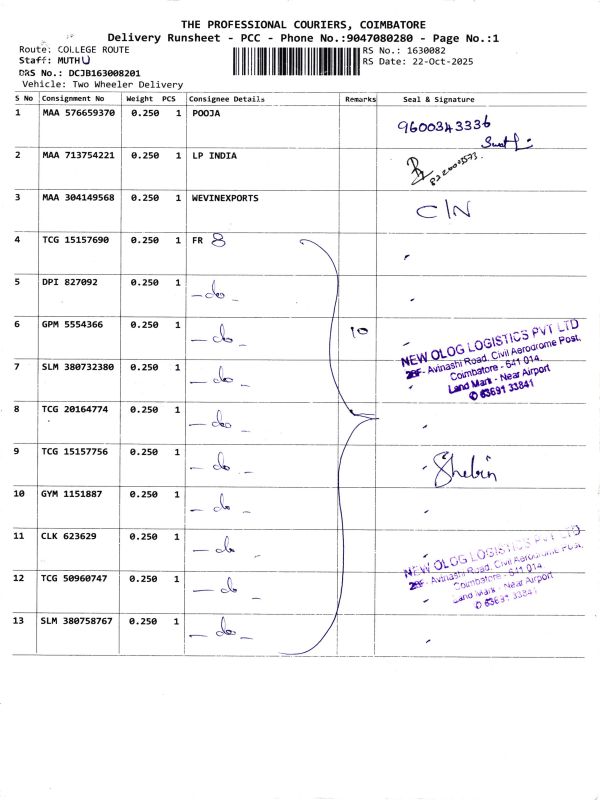 THE PROFESSIONAL COURIERS, COIMBATORE
Delivery Runsheet - PCC - Phone No.:9047080280 - Page No.:1
Route: COLLEGE ROUTE
RS No.: 1630082
Staff: MUTHU
RS Date: 22-Oct-2025
DRS No.: DCJB163008201
Vehicle: Two Wheeler Delivery
S No Consignment No Weight PCS Consignee Details Remarks Seal & Signature
1 MAA 576659370 0.250 1 POOJA 9600343336
2 MAA 713754221 0.250 1 LP INDIA
3 MAA 304149568 0.250 1 WEVINEXPORTS C/N
4 TCG 15157690 0.250 1 FR 8
5 DPI 827092 0.250 1 - do -
6 GPM 5554366 0.250 1 - do - 10
7 SLM 380732380 0.250 1 - do -
NEW OLOG LOGISTICS PVT LTD
28F- Avinashi Road, Civil Aerodrome Post,
Coimbatore - 641 014.
Land Mark - Near Airport
✆ 63691 33841
8 TCG 20164774 0.250 1 - do -
9 TCG 15157756 0.250 1 - do - Shebin
10 GYM 1151887 0.250 1 - do -
11 CLK 623629 0.250 1 - do -
12 TCG 50960747 0.250 1 - do -
NEW OLOG LOGISTICS PVT LTD
28F- Avinashi Road, Civil Aerodrome Post,
Coimbatore - 641 014
Land Mark - Near Airport
✆ 63691 33841
13 SLM 380758767 0.250 1 - do -